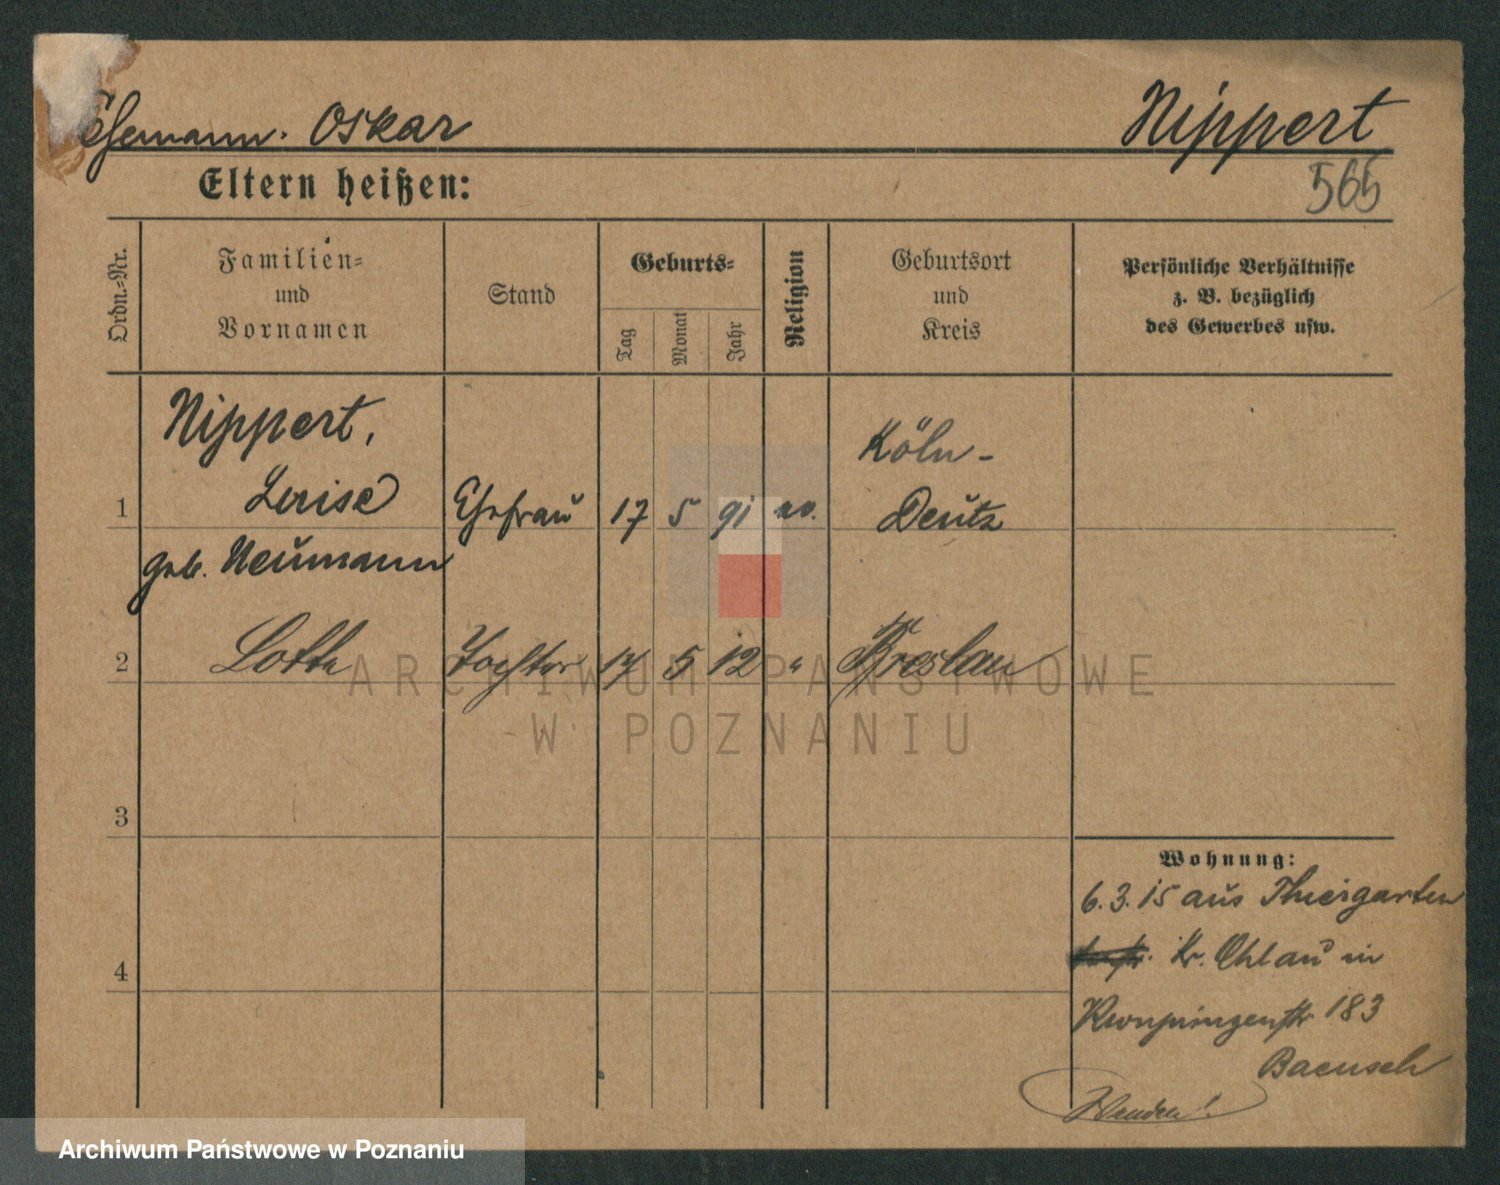 Ehemann. Oskar Nippert
565
Eltern heißen:
Ordn.=Nr.
Familien=
und
Vornamen
Stand
Geburts=
Tag Monat Jahr
Religion
Geburtsort
und
Kreis
Persönliche Verhältnisse
z. B. bezüglich
des Gewerbes usw.
Nippert,
1 Luise Ehefrau 17 5 91 ev. Köln-
Deutz
geb. Neumann
2 Lotte Tochter 17 5 12 " Breslau
3
4
Wohnung:
6.3.15 aus Thiergarten
Kr. Ohlau in
Kronprinzenstr 183
Wenden!
ARCHIWUM PAŃSTWOWE
W POZNANIU
Archiwum Państwowe w Poznaniu